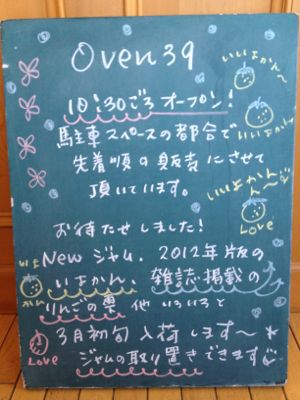 Oven39
いいよかん〜
10:30ごろオープン!
駐車スペースの都合で
いいよかん
先着順の販売にさせて
頂いています。
いいよかんん〜
Love
お待たせしました!
Newジャム、2012年版の
いよかん 雑誌掲載の
りんごの 他いろいろと
3月初旬 入荷します〜*
Love
ジャムの取り置きできます